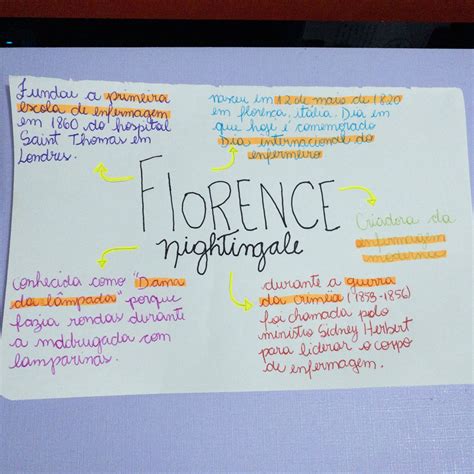 Fundou a primeira
escola de enfermagem
em 1860 do hospital
Saint Thomas em
Londres.
nasceu em 12 de maio de 1820
em florença, itália. Dia em
que hoje é comemorado
Dia internacional do
enfermeiro
FlORENCE
Nightingale
Criadora da
enfermagem
moderna
conhecida como "Dama
da lâmpada" porque
fazia rondas durante
a madrugada com
lamparinas.
durante a guerra
da criméia (1853-1856)
foi chamada pelo
ministro Sidney Herbert
para liderar o corpo
de enfermagem.